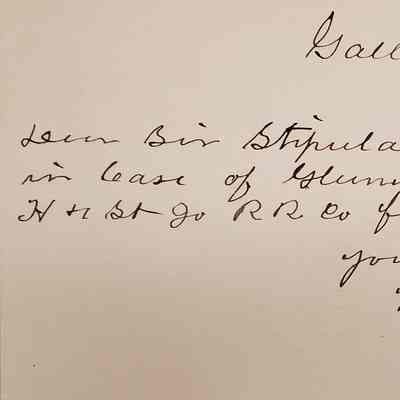 Gall
Dear Sir Stipula
in Case of Glenn
H & St Jo R R Co f
you